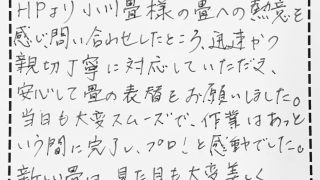 HPより小川畳様の畳への熱意を
感じ問い合わせしたところ、迅速かつ
親切丁寧に対応していただき、
安心して畳の表替をお願いしました。
当日も大変スムーズで、作業はあっと
いう間に完了し、プロ!と感動でした。
新しい畳は、見た目も大変美しく